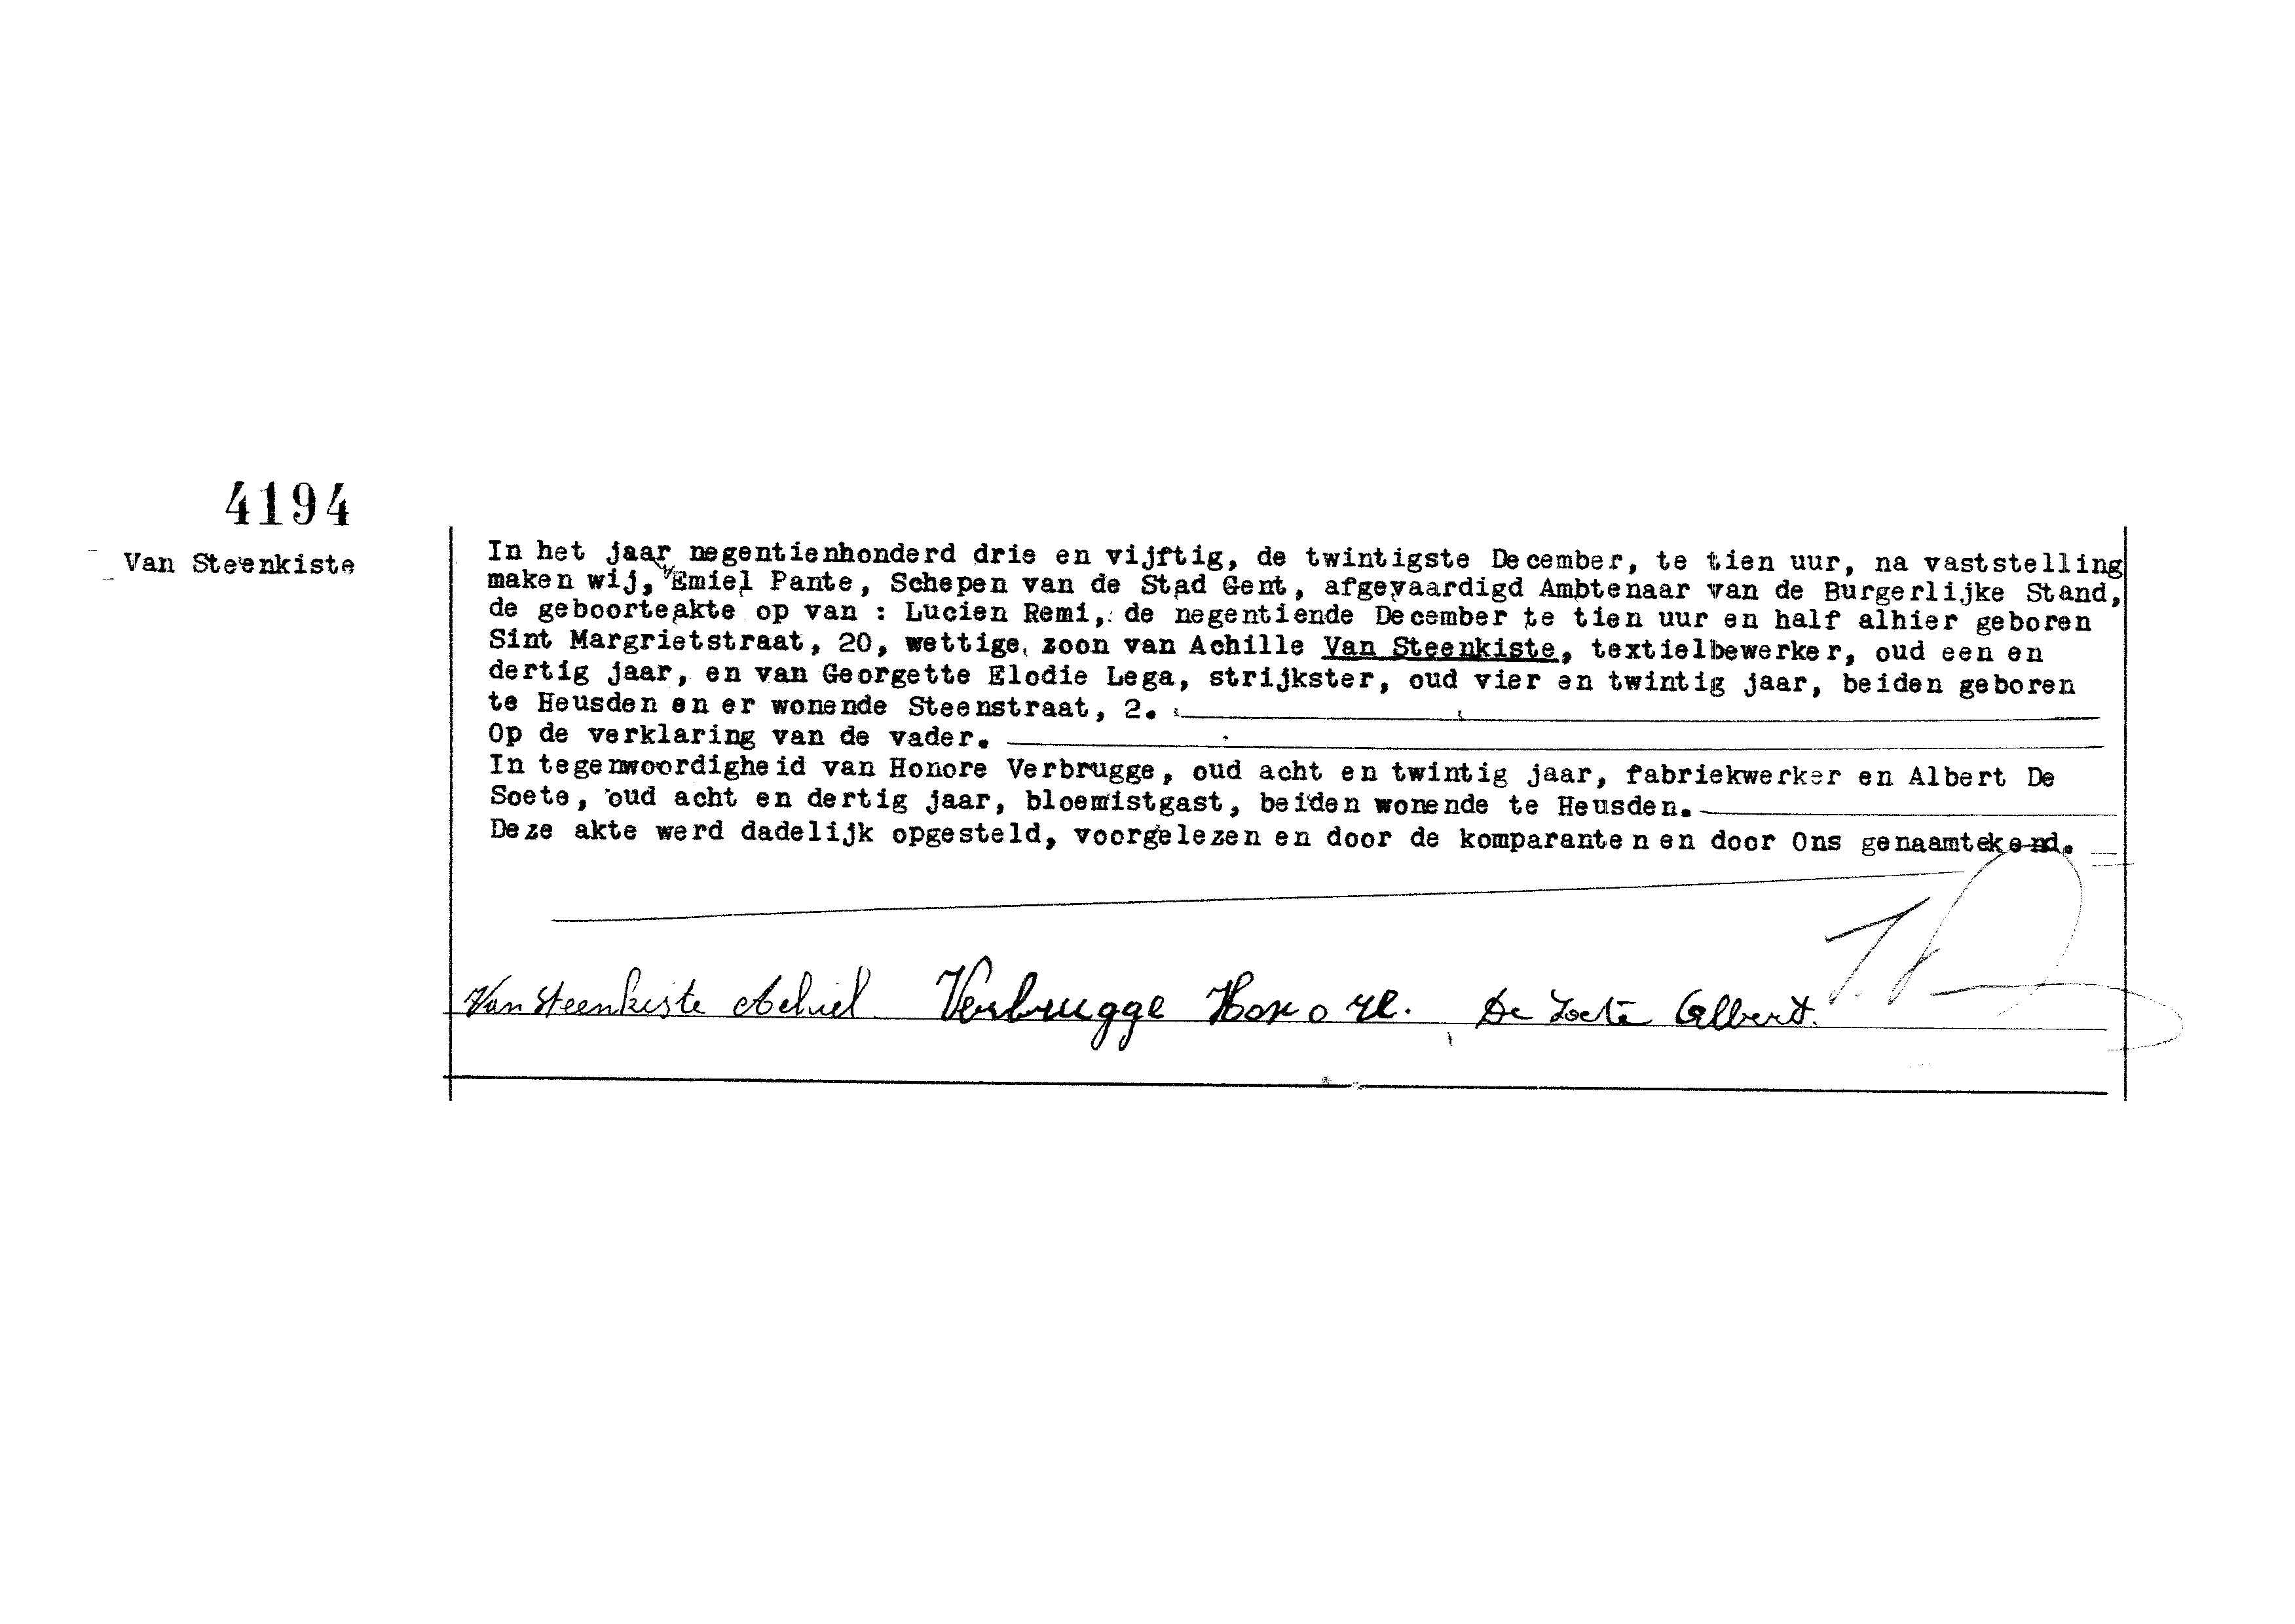 4194
Van Steenkiste
In het jaar negentienhonderd drie en vijftig, de twintigste December, te tien uur, na vaststelling
maken wij, Emiel Pante, Schepen van de Stad Gent, afgevaardigd Ambtenaar van de Burgerlijke Stand,
de geboorteakte op van : Lucien Remi, de negentiende December te tien uur en half alhier geboren
Sint Margrietstraat, 20, wettige zoon van Achille Van Steenkiste, textielbewerker, oud een en
dertig jaar, en van Georgette Elodie Lega, strijkster, oud vier en twintig jaar, beiden geboren
te Heusden en er wonende Steenstraat, 2.
Op de verklaring van de vader.
In tegenwoordigheid van Honore Verbrugge, oud acht en twintig jaar, fabriekwerker en Albert De
Soete, oud acht en dertig jaar, bloemistgast, beiden wonende te Heusden.
Deze akte werd dadelijk opgesteld, voorgelezen en door de komparanten en door Ons genaamtekend.
Van Steenkiste Achiel Verbrugge Honoré. De Zoete Albert.